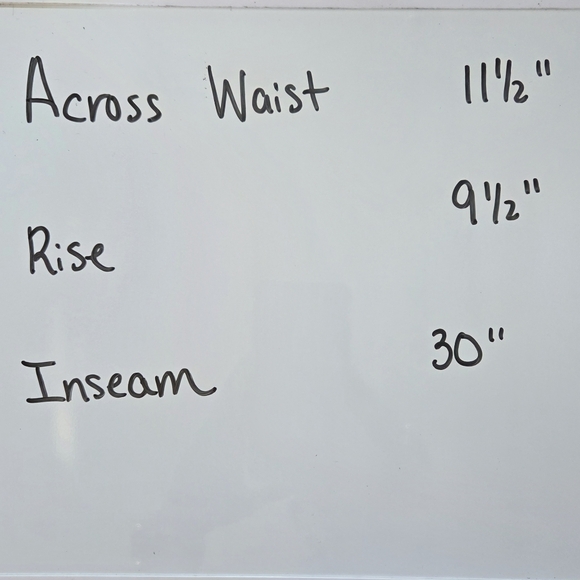 Across Waist 11 1/2"
Rise 9 1/2"
Inseam 30"